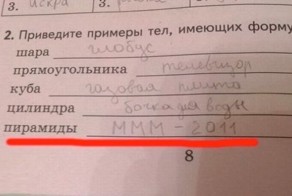 3. искра 3.
2. Приведите примеры тел, имеющих форму
шара глобус
прямоугольника телевизор
куба газовая плита
цилиндра бочка для воды
пирамиды МММ - 2011
8